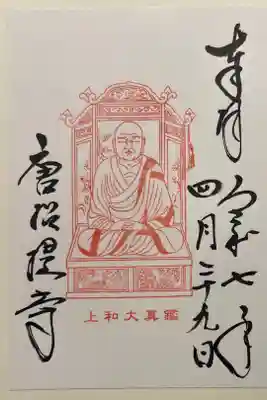 奉拝
令和七年
四月二十九日
鑑真大和上
唐招提寺